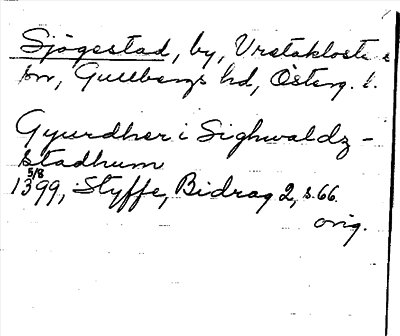 Sjögestad, by, Vretakloste s
sn, Gullbergs hd, Österg. l.
Gyurdher i Sighwaldz-
stadhum
5/8
1399, Styffe, Bidrag 2, s. 66.
orig.